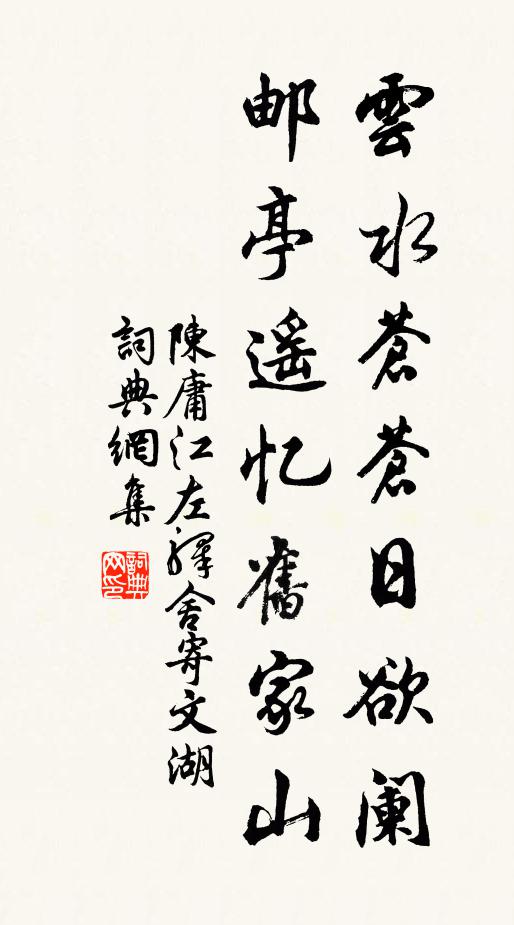 雲水蒼蒼日欲阑
邮亭遥忆舊家山
陳庸江左驛舍寄文湖
詞典網集
詞典网印